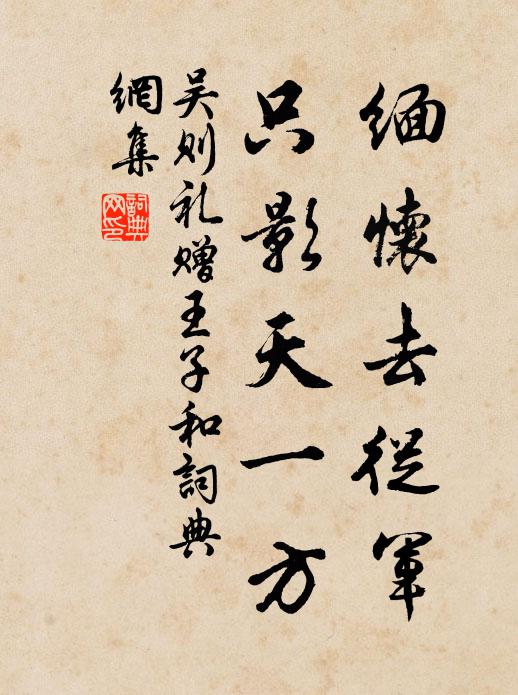 緬懷去從軍
只影天一方
吴则礼赠王子和詞典
網集
詞典
网印